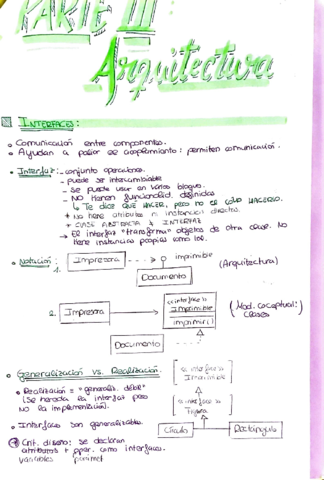 PARTE III
Arquitectura
INTERFACES:
Comunicación entre componentes.
Ayudan a paliar el acoplamiento: permiten comunicación.
Interfaz: - conjunto operaciones.
- puede ser intercambiable
- se puede usar en varios bloques.
- NO tienen funcionalid. definidas
↳ TE DICE QUE HACER, PERO NO EL CÓMO HACERLO.
+ No tiene atributos ni instancian directa.
+ CLASE ABSTRACTA ≠ INTERFAZ
→ El interfaz "transforma" objetos de otra clase. No
tiene instancias propias como tal.
Notación:
1. Impresora ---> imprimible (Arquitectura)
Documento
2. Impresora
<<interface>>
Imprimible
imprimir()
(Mod. conceptual:
Clases
Documento
Generalización vs. Realización.
<<interface>>
Imprimible
Realización = "generaliz. débil"
(Se hereda la interfaz pero
NO la implementación).
<<interface>>
Figura
Interfaces son generalizables.
Círculo
Rectángulo
Crit. diseño: se declaran
atributos + oper. como interfaces.
variables